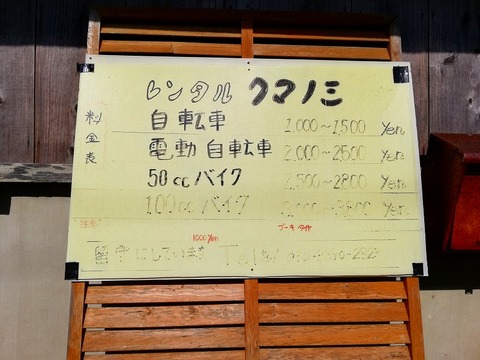 レンタル クマノミ
料金表
自転車 1,000~1500 Yen
電動自転車 2,000~2500 Yen
50ccバイク 2,500~2800 Yen
100ccバイク Yen
1000Yen ブーキ タイヤ
留守にしています Tel